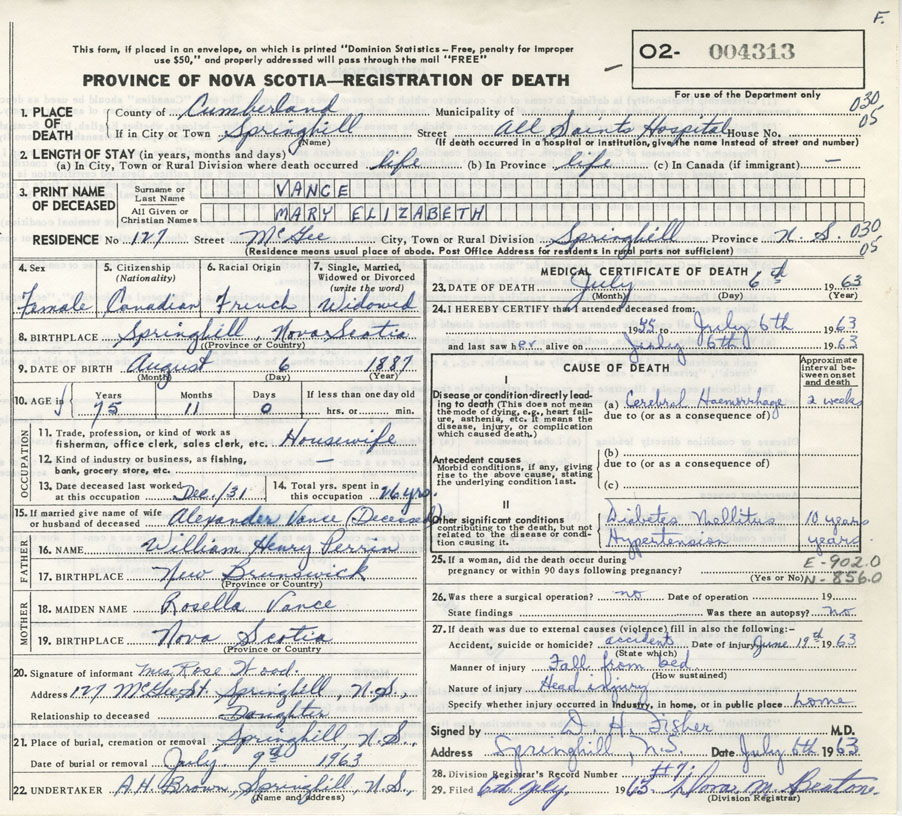 F.
This form, if placed in an envelope, on which is printed "Dominion Statistics – Free, penalty for improper
use $50," and properly addressed will pass through the mail "FREE"
O2- 004313
For use of the Department only
PROVINCE OF NOVA SCOTIA—REGISTRATION OF DEATH
1. PLACE OF DEATH
County of Cumberland Municipality of 030
If in City or Town Springhill Street All Saints Hospital House No. 05
(Name) (If death occurred in a hospital or institution, give the name instead of street and number)
2. LENGTH OF STAY (in years, months and days)
(a) In City, Town or Rural Division where death occurred life (b) In Province life (c) In Canada (if immigrant) —
3. PRINT NAME OF DECEASED
Surname or Last Name VANCE
All Given or Christian Names MARY ELIZABETH
RESIDENCE No 127 Street McGee City, Town or Rural Division Springhill Province N. S. 030
05
(Residence means usual place of abode. Post Office Address for residents in rural parts not sufficient)
4. Sex Female
5. Citizenship (Nationality) Canadian
6. Racial Origin French
7. Single, Married, Widowed or Divorced (write the word) Widowed
8. BIRTHPLACE Springhill, Nova Scotia
(Province or Country)
9. DATE OF BIRTH August 6 1887
(Month) (Day) (Year)
10. AGE in Years Months Days If less than one day old
75 11 0 hrs. or min.
OCCUPATION
11. Trade, profession, or kind of work as
fisherman, office clerk, sales clerk, etc. Housewife
12. Kind of industry or business, as fishing,
bank, grocery store, etc. —
13. Date deceased last worked
at this occupation Dec./31
14. Total yrs. spent in
this occupation 26 yrs.
15. If married give name of wife
or husband of deceased Alexander Vance (Deceased)
FATHER
16. NAME William Henry Perrin
17. BIRTHPLACE New Brunswick
(Province or Country)
MOTHER
18. MAIDEN NAME Rosella Vance
19. BIRTHPLACE Nova Scotia
(Province or Country)
20. Signature of informant Mrs Rose Wood.
Address 127 McGee St. Springhill, N.S.,
Relationship to deceased Daughter
21. Place of burial, cremation or removal Springhill N.S.,
Date of burial or removal July 9th 1963
22. UNDERTAKER A.H. Brown, Springhill, N.S.,
(Name and address)
MEDICAL CERTIFICATE OF DEATH
23. DATE OF DEATH July 6th 1963
(Month) (Day) (Year)
24. I HEREBY CERTIFY that I attended deceased from:
1945 to July 6th 1963
and last saw her alive on July 6th 1963
CAUSE OF DEATH
Approximate interval between onset and death
I
Disease or condition directly leading to death (This does not mean the mode of dying, e.g., heart failure, asthenia, etc. It means the disease, injury, or complication which caused death.)
(a) Cerebral Haemorrhage 2 weeks
due to (or as a consequence of)
Antecedent causes
Morbid conditions, if any, giving rise to the above cause, stating the underlying condition last.
(b)
due to (or as a consequence of)
(c)
II
Other significant conditions
contributing to the death, but not related to the disease or condition causing it.
Diabetes Mellitus 10 years
Hypertension years.
25. If a woman, did the death occur during
pregnancy or within 90 days following pregnancy?
(Yes or No)
E-902.0
N-856.0
26. Was there a surgical operation? no Date of operation 19
State findings Was there an autopsy? no
27. If death was due to external causes (violence) fill in also the following:–
Accident, suicide or homicide? accident Date of injury June 19th 1963
(State which)
Manner of injury Fall from bed
(How sustained)
Nature of injury Head injury
Specify whether injury occurred in industry, in home, or in public place home
Signed by D. H. Fisher M.D.
Address Springhill, N.S. Date July 6th 1963
28. Division Registrar's Record Number #7.
29. Filed 6th July. 1963
(Division Registrar)